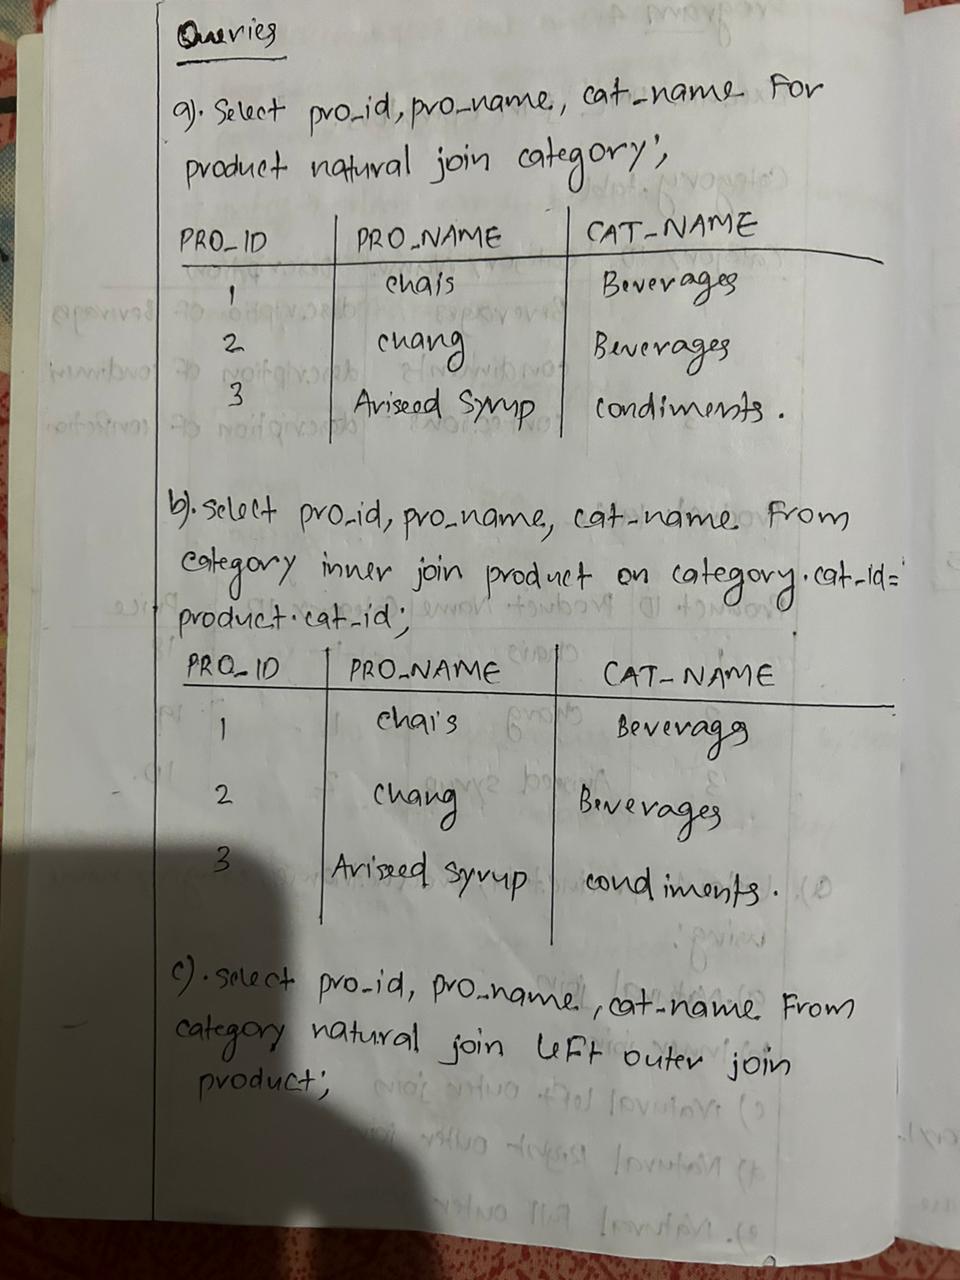 Queries
a). Select pro_id, pro_name, cat_name For
product natural join category;
PRO_ID PRO_NAME CAT_NAME
1 chais Beverages
2 chang Beverages
3 Ariseed Syrup condiments.
b). select pro_id, pro_name, cat_name From
category inner join product on category.cat_id=
product.cat_id;
PRO_ID PRO_NAME CAT_NAME
1 chais Beverags
2 chang Beverages
3 Ariseed syrup condiments.
c). select pro_id, pro_name, cat_name From
category natural join left outer join
product;